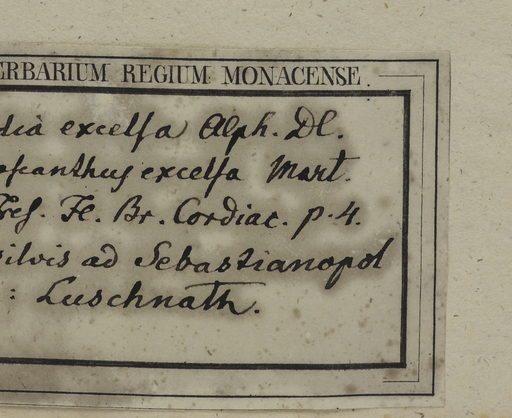 ERBARIUM REGIUM MONACENSE.
dia excelsa Alph. DC.
excelsa Mart.
Fres. Fl. Br. Cordiac. p. 4.
silvis ad Sebastianopol
: Luschnath.